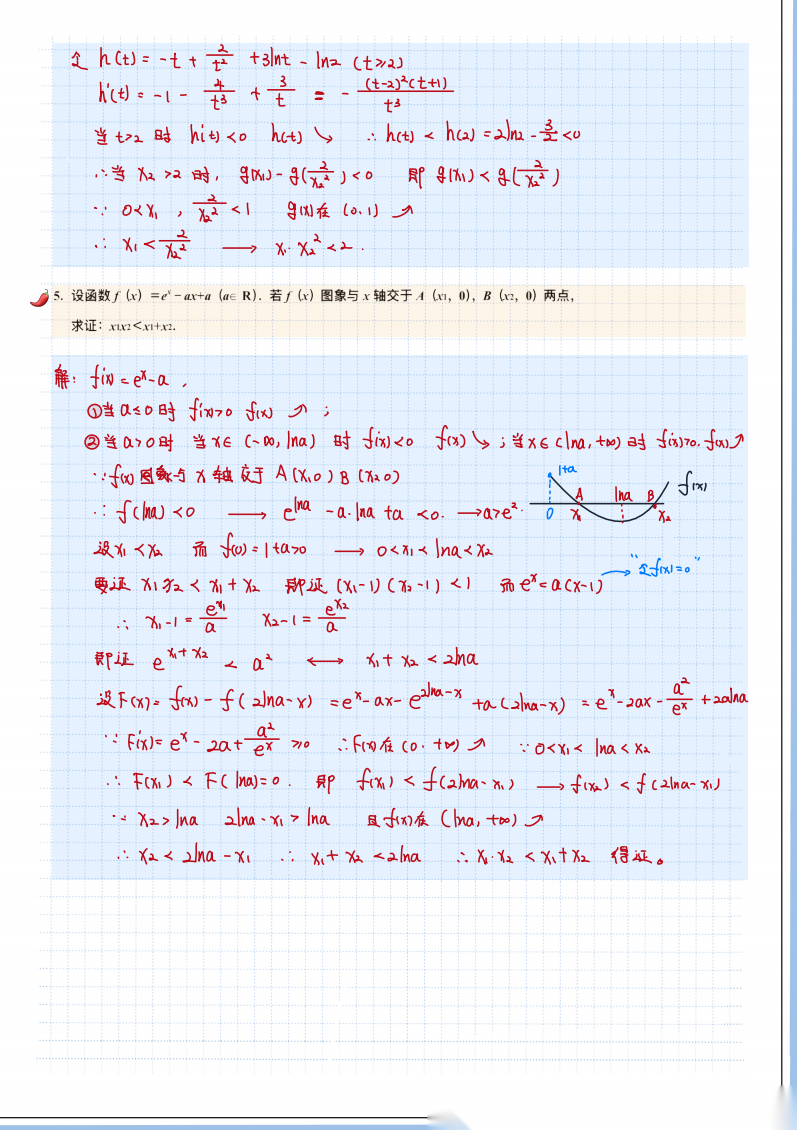 令 h(t) = -t + 2/t² + 3lnt - ln2 (t≥2)
h'(t) = -1 - 4/t³ + 3/t = - (t-2)²(t+1)/t³
当 t>2 时 h'(t)<0 h(t) ↘ ∴ h(t) < h(2) = 2ln2 - 3/2 <0
∴当 x₂>2 时, g(x₁) - g(2/x₂²) <0 即 g(x₁) < g(2/x₂²)
∵ 0<x₁ , 2/x₂² <1 g(x)在 (0,1) ↗
∴ x₁ < 2/x₂² ⟶ x₁·x₂² <2 .
5. 设函数 f（x）=eˣ－ax+a（a∈ R）. 若 f（x）图象与 x 轴交于 A（x₁，0），B（x₂，0）两点，
求证：x₁x₂＜x₁+x₂.
解: f'(x) = eˣ-a ,
①当 a≤0 时 f'(x)>0 f(x) ↗ ;
②当 a>0 时 当 x∈ (-∞, lna) 时 f'(x)<0 f(x) ↘ ; 当 x∈(lna, +∞) 时 f'(x)>0. f(x)↗
∵f(x) 图象与 x 轴 交于 A(x₁0) B(x₂0)
1+a
A lna B f(x)
0 x₁ x₂
∴ f(lna) <0 ⟶ e^lna - a·lna +a <0. ⟶a>e².
设 x₁<x₂ 而 f(0) = 1+a>0 ⟶ 0<x₁< lna<x₂
"令f(x)=0"
要证 x₁x₂ < x₁+x₂ 即证 (x₁-1)(x₂-1) <1 而 eˣ= a(x-1)
∴ x₁-1 = e^x₁/a x₂-1 = e^x₂/a
即证 e^(x₁+x₂) < a² ⟷ x₁+x₂ <2lna
设F(x)= f(x) - f(2lna-x) = eˣ-ax- e^(2lna-x) +a(2lna-x) = eˣ-2ax- a²/eˣ +2alna
∵ F'(x)= eˣ- 2a+ a²/eˣ ≥0 ∴F(x)在(0. +∞) ↗ ∵0<x₁< lna<x₂
∴ F(x₁) < F(lna)=0. 即 f(x₁) < f(2lna-x₁) ⟶ f(x₂) < f(2lna-x₁)
∵ x₂>lna 2lna-x₁> lna 且 f(x)在 (lna, +∞) ↗
∴ x₂ < 2lna-x₁ ∴ x₁+x₂ <2lna ∴ x₁·x₂ < x₁+x₂ 得证。